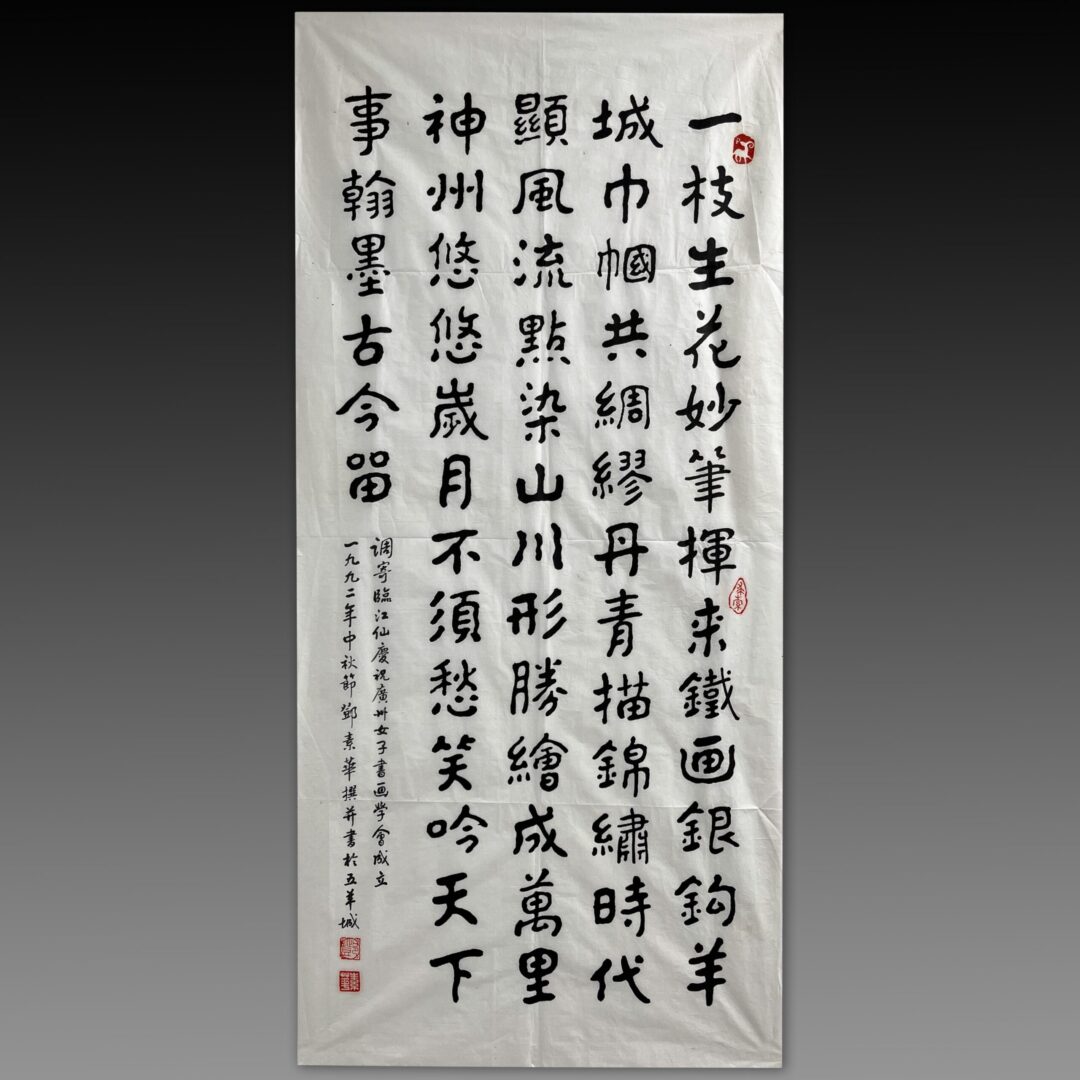 一枝生花妙筆揮来鐵画銀鈎羊
城巾幗共綢繆丹青描錦繡時代
顯風流點染山川形勝繪成萬里
神州悠悠歲月不須愁笑吟天下
事翰墨古今留
调寄臨江仙慶祝廣州女子書画学會成立
一九九二年中秋節鄧素華撰并書於五羊城